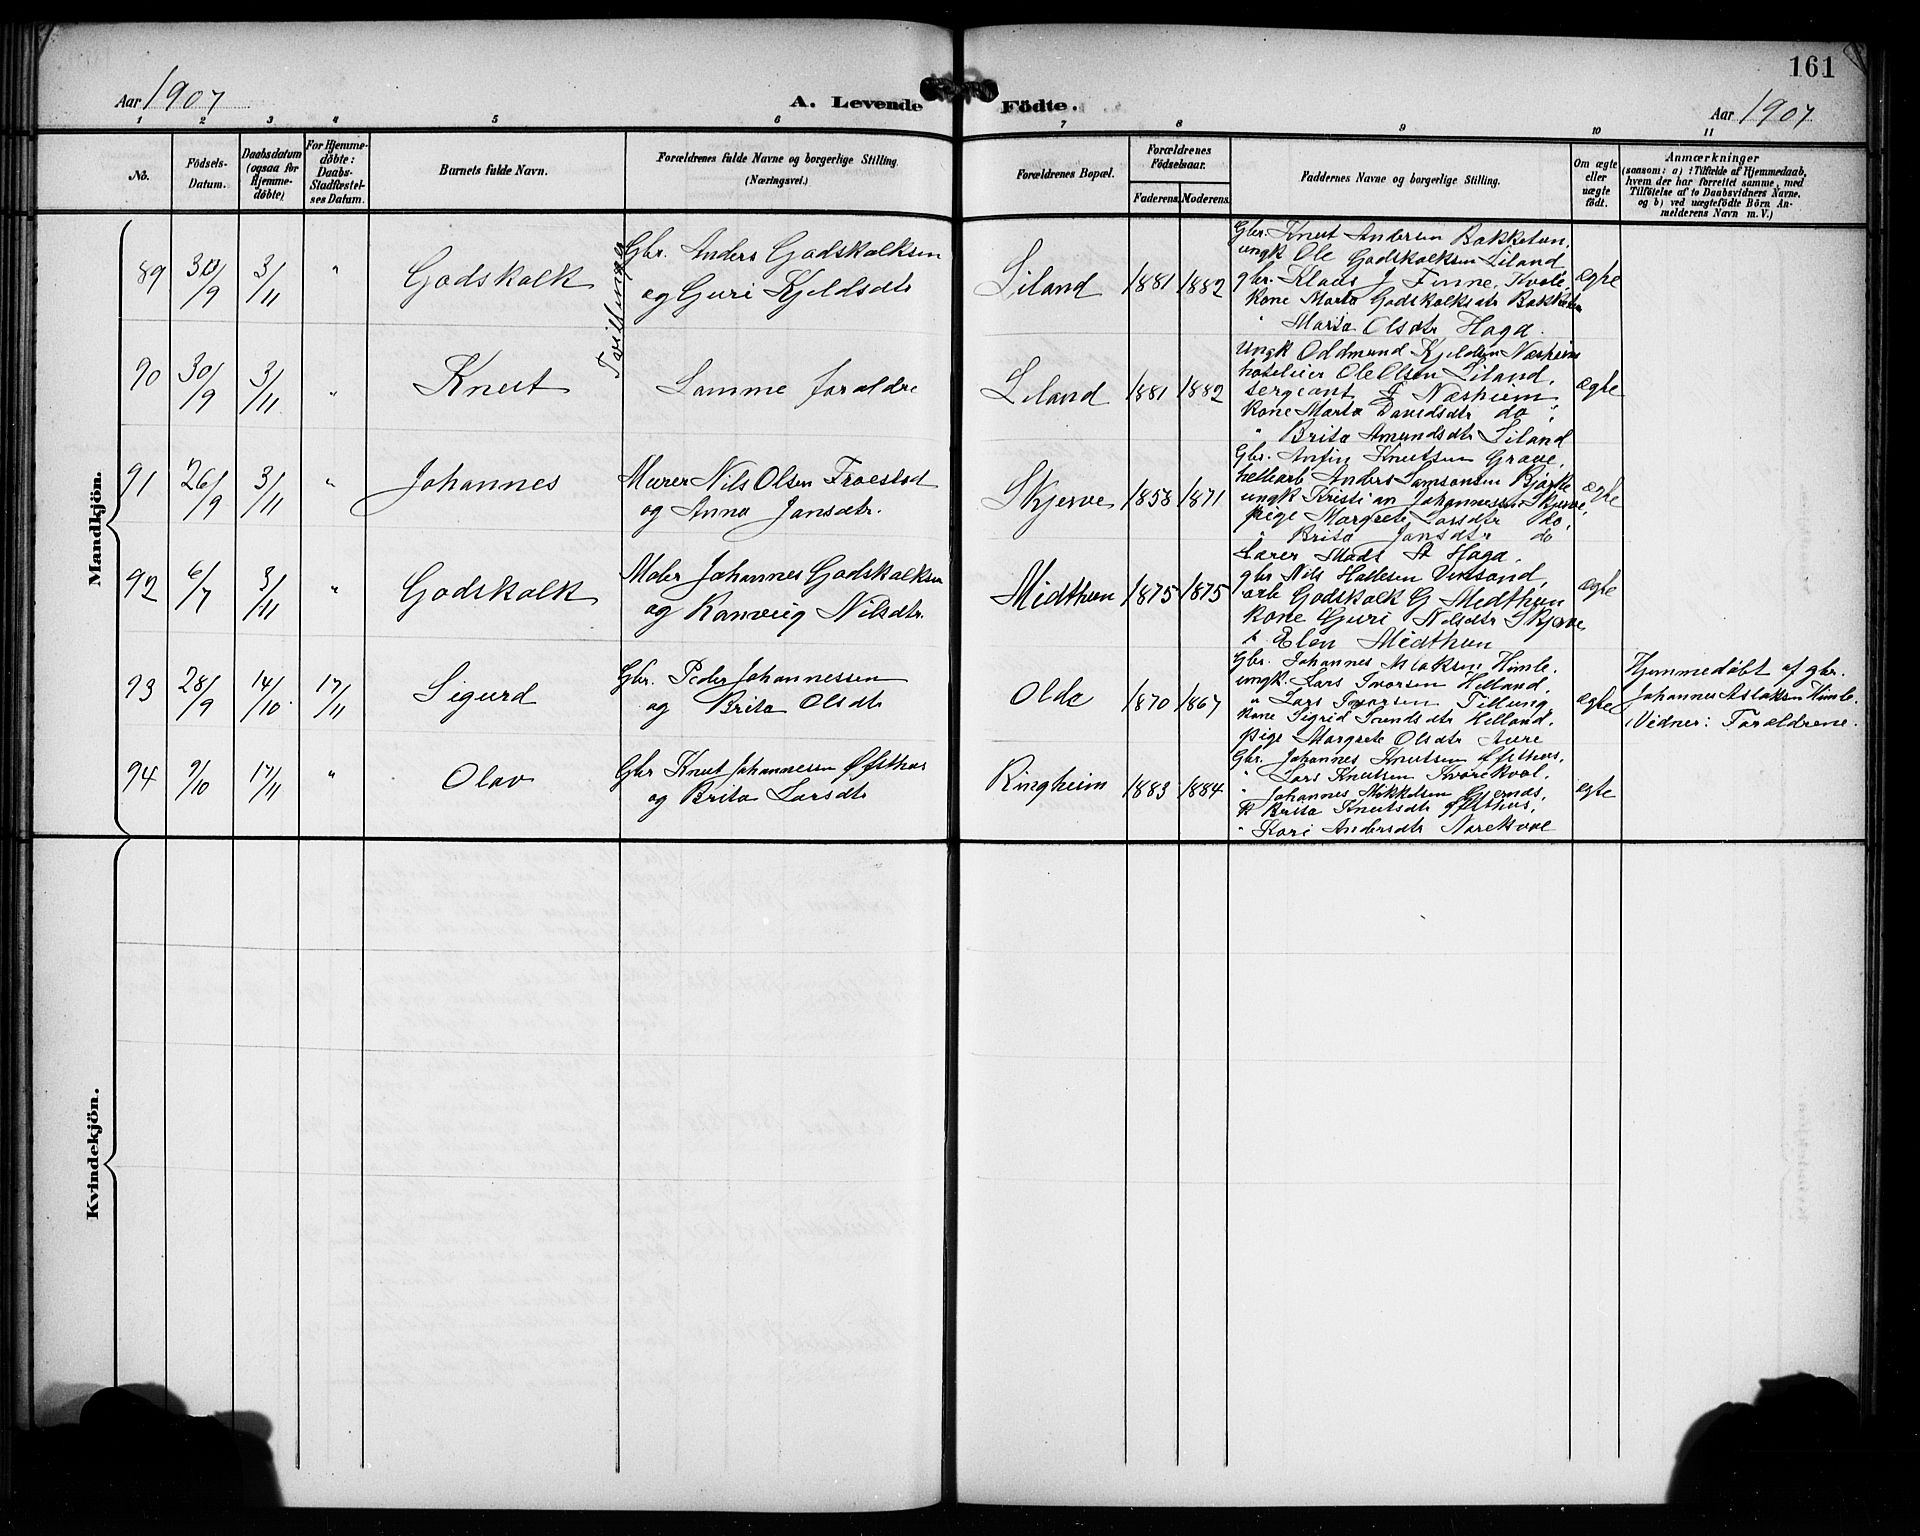 161
Aar 1907
A. Levende Födte.
Aar 1907
1 2 3 4 5 6 7 8 9 10 11
No.
Födsels-
Datum.
Daabsdatum
(ogsaa for
Hjemme-
døbte)
For Hjemme-
døbte:
Daabs-
Stadfæstel-
ses Datum.
Barnets fulde Navn.
Forældrenes fulde Navne og borgerlige Stilling.
(Næringsvei.)
Forældrenes Bopæl.
Forældrenes
Födselsaar.
Faderens. Moderens.
Faddernes Navne og borgerlige Stilling.
Om ægte
eller
uægte
födt.
Anmærkninger
(saasom: a) i Tilfælde af Hjemmedaab,
hvem der har forrettet samme, med
Tilföielse af to Daabsvidners Navne,
og b) ved uægtefödte Börn An-
melderens Navn m. V.)
Mandkjön.
Tvillinger
89 30/9 3/11 "
Godskalk
Gbr. Anders Godskalksen
og Guri Kjeldsdtr
Liland 1881 1882
Gbr. Knut Andersen Bakketun,
ungk Ole Godskalksen Liland
gbr. Klaus J Finne, Kvole,
Kone Marta Godskalksdtr
" Marta Olsdtr Haga.
ægte
90 30/9 3/11 "
Knut
Samme forældre
Liland 1881 1882
Ungk Oddmund Kjeldsen Næsheim
hotelier Ole Olsen Liland,
Sergeant Næsheim
Kone Marta Davidsdtr do
" Brita Amundsdtr Liland
ægte
91 26/9 3/11 "
Johannes
Murer Nils Olsen
og Anna Jansdtr.
Skjerve 1858 1871
Gbr. Anfin Knutsen Grove,
Anders Samsonsen
ungk Kristian Johannessen Skjerve,
pige Margrete Larsdtr do,
" Brita Jansdtr do
ægte
92 6/7 3/11 "
Godskalk
Maler Johannes Godskalksen
og Ranveig Nilsdtr.
Midthun 1875 1875
Lærer Mads Haga,
gbr Nils
arb Godskalk G Midthun
Kone Guri Nilsdtr Skjerve
" Elen Midthun
ægte
93 28/9 14/10 17/11
Sigurd
Gbr. Peder Johannessen
og Brita Olsdtr
Olde 1870 1867
Gbr. Johannes Aslaksen Himle,
ungk. Lars Ivarsen Helland,
" Lars Ivarsen
Kone Sigrid Helland,
Pige Margrete Olsdtr
ægte
Hjemmedøbt af gbr.
Johannes Aslaksen Himle.
Vidner: Forældrene.
94 9/10 17/11 "
Olav
Gbr Knut Johannesen Øfsthus
og Brita Larsdtr
Ringheim 1883 1884
Gbr. Johannes Knutsen Øfsthus,
" Lars Knutsen
" Johannes Mikkelsen
K Brita Knutsdtr Øfsthus,
" Kari Andersdtr
egte
Kvindekjön.